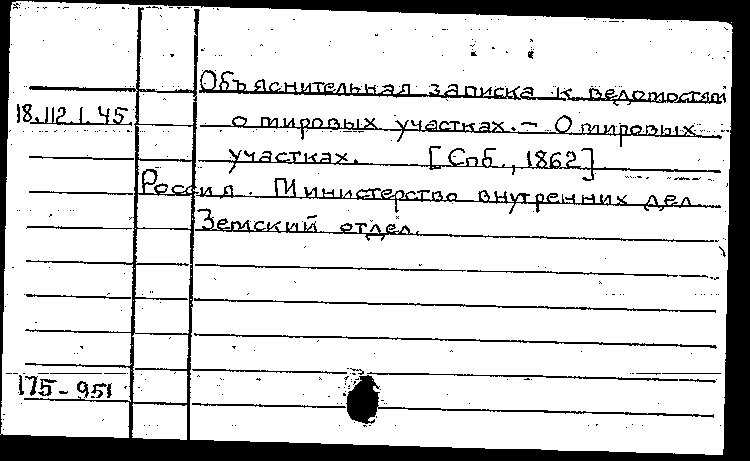 Объяснительная записка к ведомостям
18.112.1.45.
о мировых участках. – О мировых
участках. [Спб., 1862]
Россия. Министерство внутренних дел.
Земский отдел.
175-951